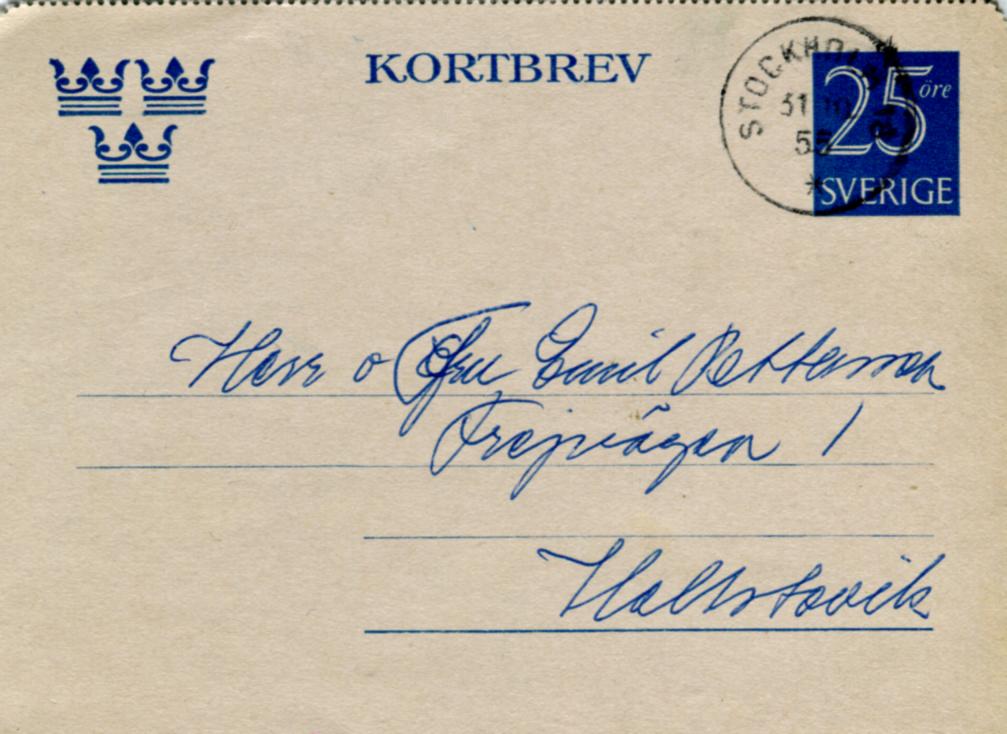 KORTBREV
STOCKHOLM
31 10
55
25 öre
SVERIGE
Herr o Fru Emil Pettersson
Frejvägen 1
Hallstavik